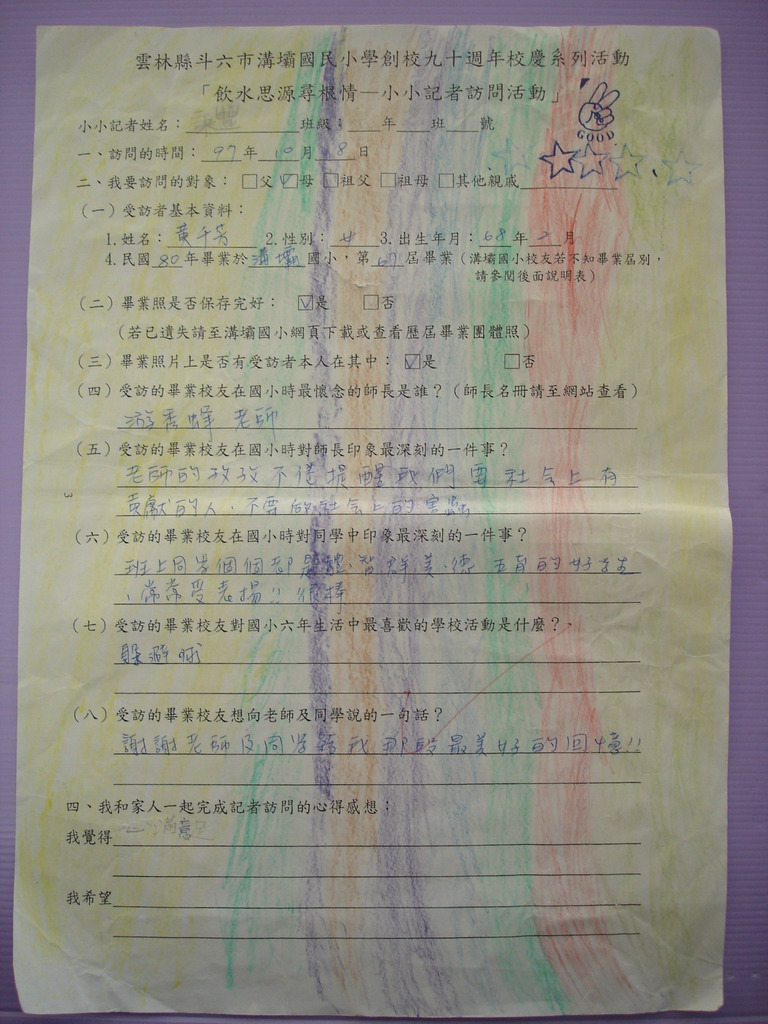 雲林縣斗六市溝壩國民小學創校九十週年校慶系列活動
「飲水思源尋根情—小小記者訪問活動」
GOOD
小小記者姓名： 班級： 年 班 號
一、訪問的時間：97年10月18日
二、我要訪問的對象：□父☑母□祖父□祖母□其他親戚
（一）受訪者基本資料：
1.姓名：黃千芳 2.性別：女 3.出生年月：68年2月
4.民國80年畢業於溝壩國小，第67屆畢業（溝壩國小校友若不知畢業屆別，
請參閱後面說明表）
（二）畢業照是否保存完好：☑是 □否
（若已遺失請至溝壩國小網頁下載或查看歷屆畢業團體照）
（三）畢業照片上是否有受訪者本人在其中：☑是 □否
（四）受訪的畢業校友在國小時最懷念的師長是誰？（師長名冊請至網站查看）
游秀蜂 老師
（五）受訪的畢業校友在國小時對師長印象最深刻的一件事？
老師的孜孜不倦提醒我們要社会上有
貢獻的人、不要做社会上的害蟲
（六）受訪的畢業校友在國小時對同學中印象最深刻的一件事？
班上同學個個都是體、智、群、美、德 五育的好學生
、常常受表揚!!很棒
（七）受訪的畢業校友對國小六年生活中最喜歡的學校活動是什麼？、
躲避球
（八）受訪的畢業校友想向老師及同學說的一句話？
謝謝老師及同學給我那段最美好的回憶!!
3
四、我和家人一起完成記者訪問的心得感想：
我覺得 滿意
我希望